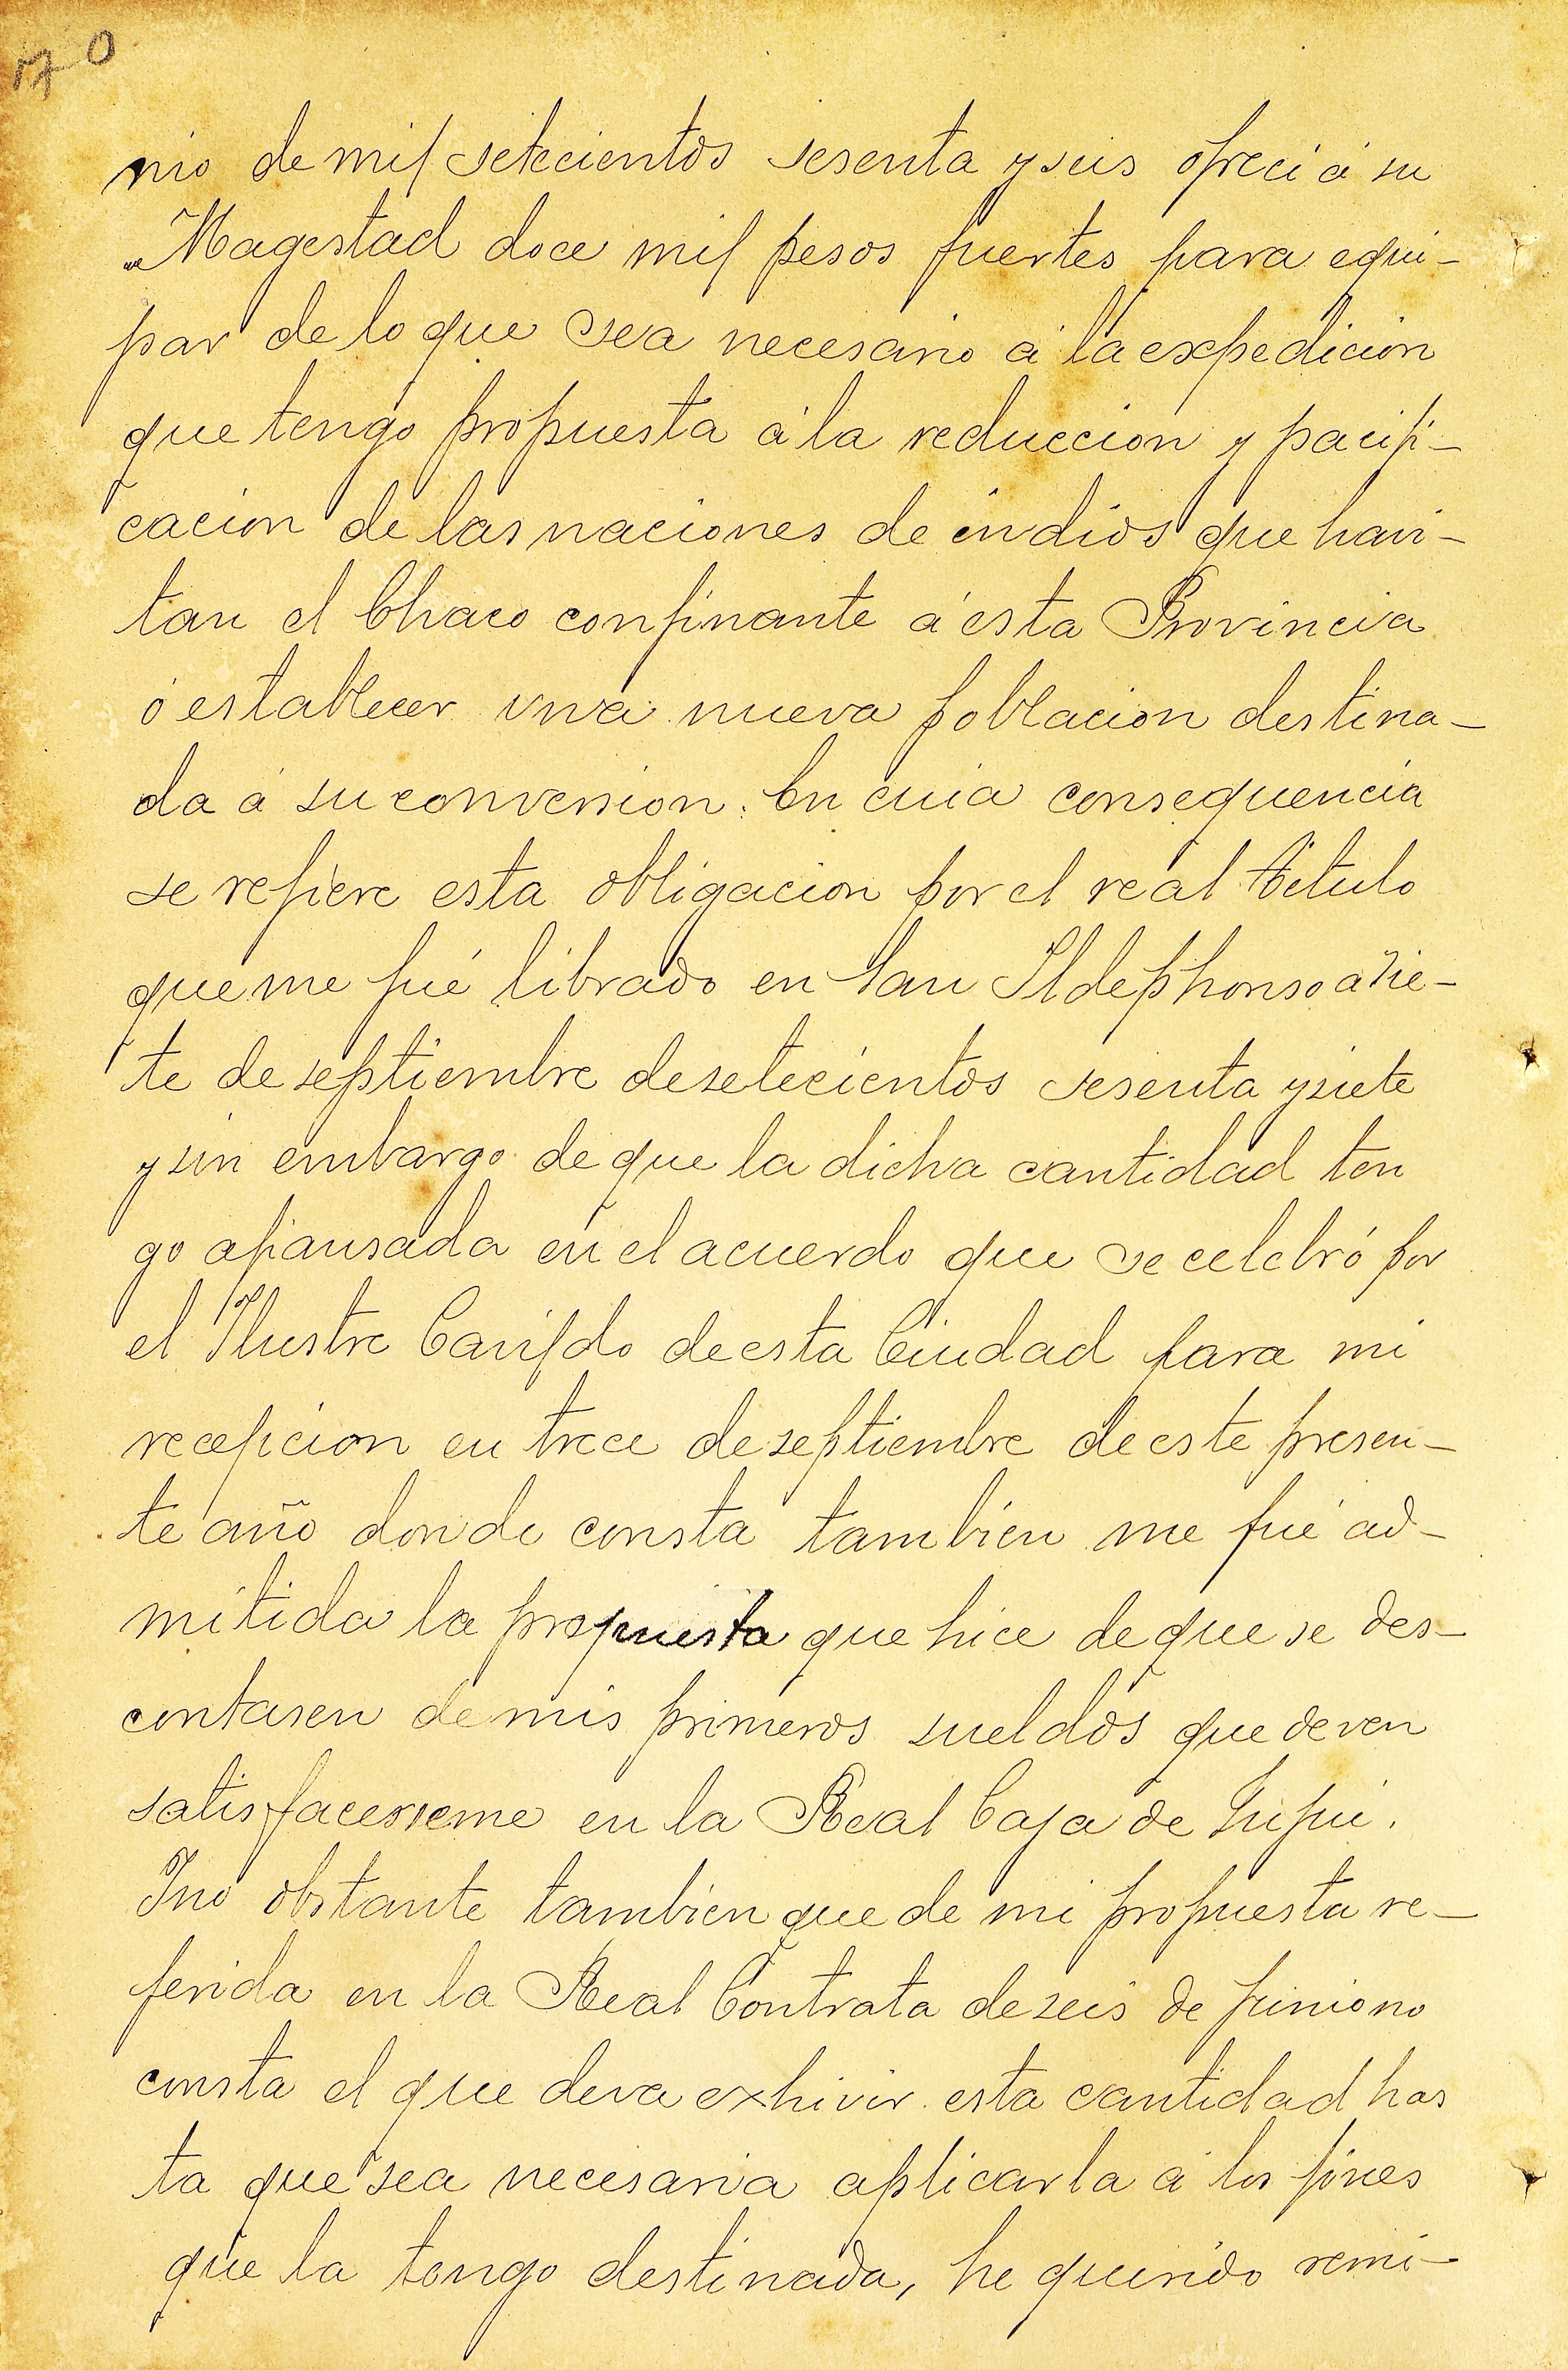 170
nio de mil setecientos sesenta y seis ofreci á su
Magestad doce mil pesos fuertes para equi-
par de lo que sea necesario á la expedicion
que tengo propuesta á la reduccion y pacifi-
cacion de las naciones de indios que havi-
tan el Chaco confinante á esta Provincia
ó establecer una nueva poblacion destina-
da á su conversion. En cuia consequencia
se refiere esta obligacion por el real titulo
que me fué librado en San Ildephonso a sie-
te de septiembre de setecientos sesenta y siete
y sin embargo de que la dicha cantidad ten
go afiansada en el acuerdo que se celebró por
el Ilustre Cavildo de esta Ciudad para mi
recepcion en trece de septiembre de este presen-
te año donde consta tambien me fué ad-
mitida la propuesta que hice de que se des-
contasen de mis primeros sueldos que deven
satisfacerseme en la Real Caja de Jujui.
Y no obstante tambien que de mi propuesta re-
ferida en la Real Contrata de seis de junio no
consta el que deva exhivir esta cantidad has
ta que sea necesaria aplicarla á los fines
que la tengo destinada, he querido remi-